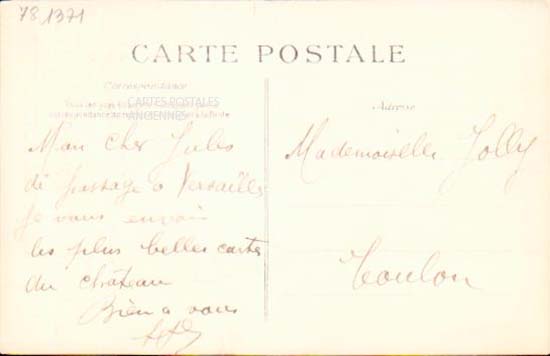 78 1371
CARTE POSTALE
Correspondance
CARTES POSTALES
ANCIENNES
Adresse
Mon cher Jules
de passage a Versailles
Je vous envoie
les plus belles cartes
du château
Bien a vous
Mademoiselle Jolly
Toulon